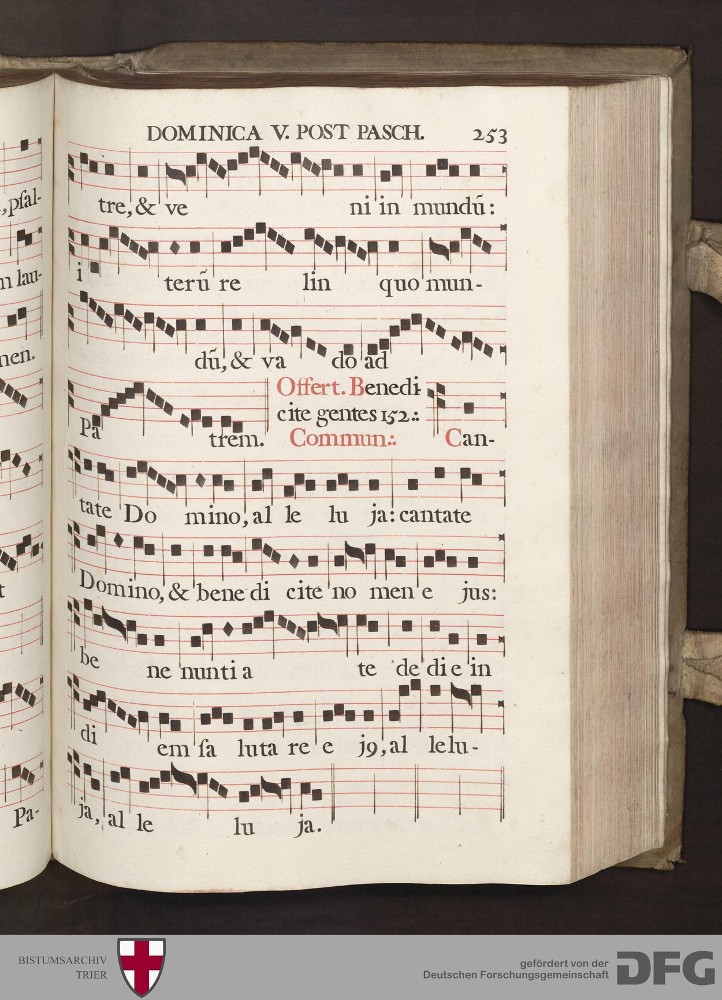 ,psal-
m lau-
nen.
t
Pa-
DOMINICA V. POST PASCH. 253
tre, & ve ni in mundū:
i terū re lin quo mun-
dū, & va do ad
Offert. Benedi
cite gentes 152.:
Pa trem. Commun.: Can-
tate Do mino, al le lu ja: cantate
Domino, & bene di cite no men e jus:
be ne nunti a te de di e in
di em sa luta re e j9, al lelu-
ja, al le lu ja.
BISTUMSARCHIV
TRIER
gefördert von der
Deutschen Forschungsgemeinschaft
DFG